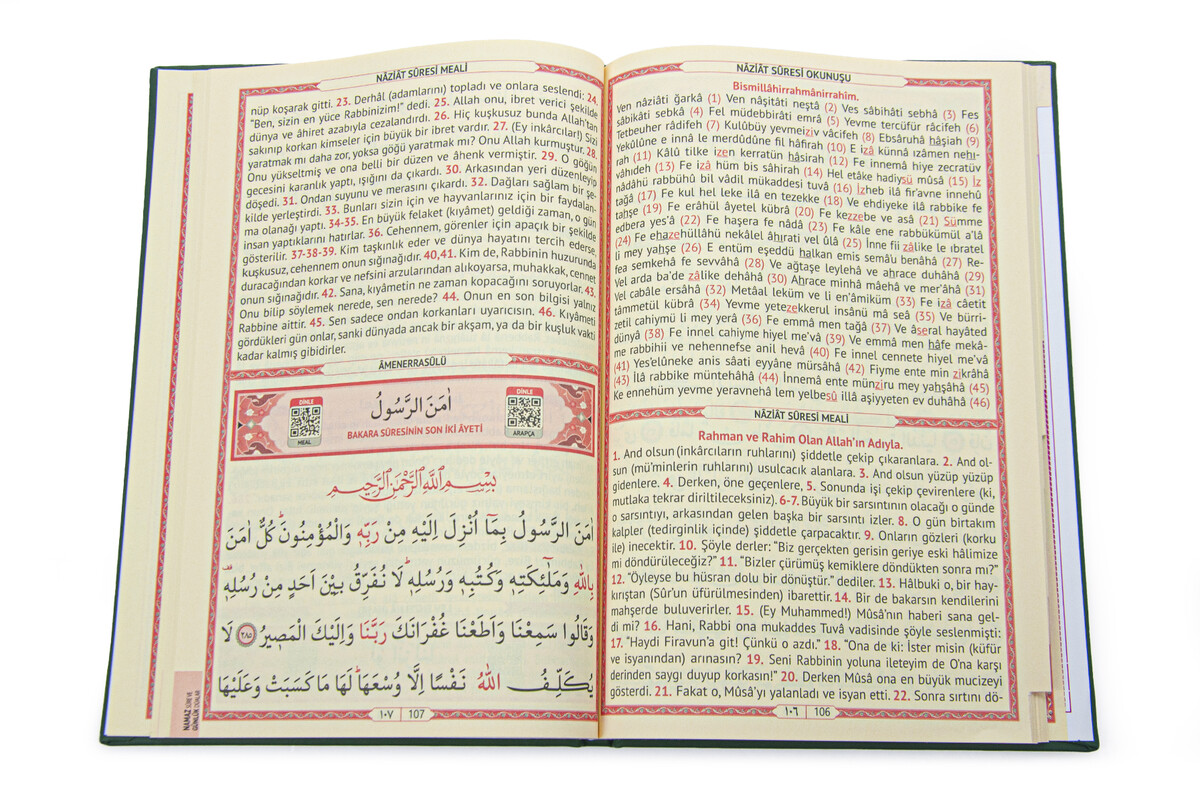 NÂZİÂT SÛRESİ OKUNUŞU
Bismillâhirrahmânirrahîm.
Ven nâziâti ğarkâ (1) Ven nâşitâti neştâ (2) Ves sâbihâti sebhâ (3) Fes
sâbikâti sebkâ (4) Fel müdebbirâti emrâ (5) Yevme tercüfür râcifeh (6)
Tetbeuher râdifeh (7) Kulûbüy yevmeiziv vâcifeh (8) Ebsâruhâ hâşiah (9)
Yekûlûne e innâ le merdûdûne fil hâfirah (10) E izâ künnâ ızâmen nehı-
rah (11) Kâlû tilke izen kerratün hâsirah (12) Fe innemâ hiye zecratüv
vâhıdeh (13) Fe izâ hüm bis sâhirah (14) Hel etâke hadiysü mûsâ (15) İz
nâdâhü rabbühû bil vâdil mükaddesi tuvâ (16) İzheb ilâ fir'avne innehû
tağâ (17) Fe kul hel leke ilâ en tezekke (18) Ve ehdiyeke ilâ rabbike fe
tahşe (19) Fe erâhül âyetel kübrâ (20) Fe kezzebe ve asâ (21) Sümme
edbera yes'â (22) Fe haşera fe nâdâ (23) Fe kâle ene rabbükümül a'lâ
(24) Fe ehazehüllâhü nekâlel âhırati vel ûlâ (25) İnne fii zâlike le ıbratel
li mey yahşe (26) E entüm eşeddü halkan emis semâ'u benâhâ (27) Re-
fea semkehâ fe sevvâhâ (28) Ve ağtaşe leylehâ ve ahrace duhâhâ (29)
Vel arda ba'de zâlike dehâhâ (30) Ahrace minhâ mâehâ ve mer'âhâ (31)
Vel cabâle ersâhâ (32) Metâal leküm ve li en'âmiküm (33) Fe izâ câetit
tâmmetül kübrâ (34) Yevme yetezekkerul insânü mâ seâ (35) Ve bürri-
zetil cahiymü li mey yerâ (36) Fe emmâ men tağâ (37) Ve âseral hayâted
dünyâ (38) Fe innel cahiyme hiyel me'vâ (39) Ve emmâ men hâfe mekâ-
me rabbihii ve nehennefse anil hevâ (40) Fe innel cennete hiyel me'vâ
(41) Yes'elûneke anis sâati eyyâne mürsâhâ (42) Fiyme ente min zikrâhâ
(43) İlâ rabbike müntehâhâ (44) İnnemâ ente münziru mey yahşâhâ (45)
Ke ennehüm yevme yeravnehâ lem yelbesû illâ aşiyyeten ev duhâhâ (46)
NÂZİÂT SÛRESİ MEALİ
Rahman ve Rahim Olan Allah'ın Adıyla.
1. And olsun (inkârcıların ruhlarını) şiddetle çekip çıkaranlara. 2. And ol-
sun (mü'minlerin ruhlarını) usulcacık alanlara. 3. And olsun yüzüp yüzüp
gidenlere. 4. Derken, öne geçenlere, 5. Sonunda işi çekip çevirenlere (ki,
mutlaka tekrar diriltileceksiniz). 6-7. Büyük bir sarsıntının olacağı o günde
o sarsıntıyı, arkasından gelen başka bir sarsıntı izler. 8. O gün birtakım
kalpler (tedirginlik içinde) şiddetle çarpacaktır. 9. Onların gözleri (korku
ile) inecektir. 10. Şöyle derler: "Biz gerçekten gerisin geriye eski hâlimize
mi döndürüleceğiz?" 11. "Bizler çürümüş kemiklere döndükten sonra mı?"
12. "Öyleyse bu hüsran dolu bir dönüştür." dediler. 13. Hâlbuki o, bir hay-
kırıştan (Sûr'un üfürülmesinden) ibarettir. 14. Bir de bakarsın kendilerini
mahşerde buluverirler. 15. (Ey Muhammed!) Mûsâ'nın haberi sana gel-
di mi? 16. Hani, Rabbi ona mukaddes Tuvâ vadisinde şöyle seslenmişti:
17. "Haydi Firavun'a git! Çünkü o azdı." 18. "Ona de ki: İster misin (küfür
ve isyanından) arınasın? 19. Seni Rabbinin yoluna ileteyim de O'na karşı
derinden saygı duyup korkasın!" 20. Derken Mûsâ ona en büyük mucizeyi
gösterdi. 21. Fakat o, Mûsâ'yı yalanladı ve isyan etti. 22. Sonra sırtını dö-
١٠٦ 106
NÂZİÂT SÛRESİ MEALİ
nüp koşarak gitti. 23. Derhâl (adamlarını) topladı ve onlara seslendi: 24.
"Ben, sizin en yüce Rabbinizim!" dedi. 25. Allah onu, ibret verici şekilde
dünya ve âhiret azabıyla cezalandırdı. 26. Hiç kuşkusuz bunda Allah'tan
sakınıp korkan kimseler için büyük bir ibret vardır. 27. (Ey inkârcılar!) Sizi
yaratmak mı daha zor, yoksa göğü yaratmak mı? Onu Allah kurmuştur. 28.
Onu yükseltmiş ve ona belli bir düzen ve âhenk vermiştir. 29. O göğün
gecesini karanlık yaptı, ışığını da çıkardı. 30. Arkasından yeri düzenleyip
döşedi. 31. Ondan suyunu ve merasını çıkardı. 32. Dağları sağlam bir şe-
kilde yerleştirdi. 33. Bunları sizin için ve hayvanlarınız için bir faydalan-
ma olanağı yaptı. 34-35. En büyük felaket (kıyâmet) geldiği zaman, o gün
insan yaptıklarını hatırlar. 36. Cehennem, görenler için apaçık bir şekilde
gösterilir. 37-38-39. Kim taşkınlık eder ve dünya hayatını tercih ederse,
kuşkusuz, cehennem onun sığınağıdır. 40,41. Kim de, Rabbinin huzurunda
duracağından korkar ve nefsini arzularından alıkoyarsa, muhakkak, cennet
onun sığınağıdır. 42. Sana, kıyâmetin ne zaman kopacağını soruyorlar. 43.
Onu bilip söylemek nerede, sen nerede? 44. Onun en son bilgisi yalnız
Rabbine aittir. 45. Sen sadece ondan korkanları uyarıcısın. 46. Kıyâmeti
gördükleri gün onlar, sanki dünyada ancak bir akşam, ya da bir kuşluk vakti
kadar kalmış gibidirler.
ÂMENERRASÛLÜ
DİNLE
MEAL
اٰمَنَ الرَّسُولُ
BAKARA SÛRESİNİN SON İKİ ÂYETİ
DİNLE
ARAPÇA
بِسْمِ اللّٰهِ الرَّحْمٰنِ الرَّحِيمِ
اٰمَنَ الرَّسُولُ بِمَٓا اُنْزِلَ اِلَيْهِ مِنْ رَبِّهٖ وَالْمُؤْمِنُونَۜ كُلٌّ اٰمَنَ
بِاللّٰهِ وَمَلٰٓئِكَتِهٖ وَكُتُبِهٖ وَرُسُلِهٖۜ لَا نُفَرِّقُ بَيْنَ اَحَدٍ مِنْ رُسُلِهٖ۠
وَقَالُوا سَمِعْنَا وَاَطَعْنَا غُفْرَانَكَ رَبَّنَا وَاِلَيْكَ الْمَصِيرُ ﴿٢٨٥﴾ لَا
يُكَلِّفُ اللّٰهُ نَفْسًا اِلَّا وُسْعَهَاۜ لَهَا مَا كَسَبَتْ وَعَلَيْهَا
١٠٧ 107
NAMAZ SÛRE VE
GÜNLÜK DUALAR